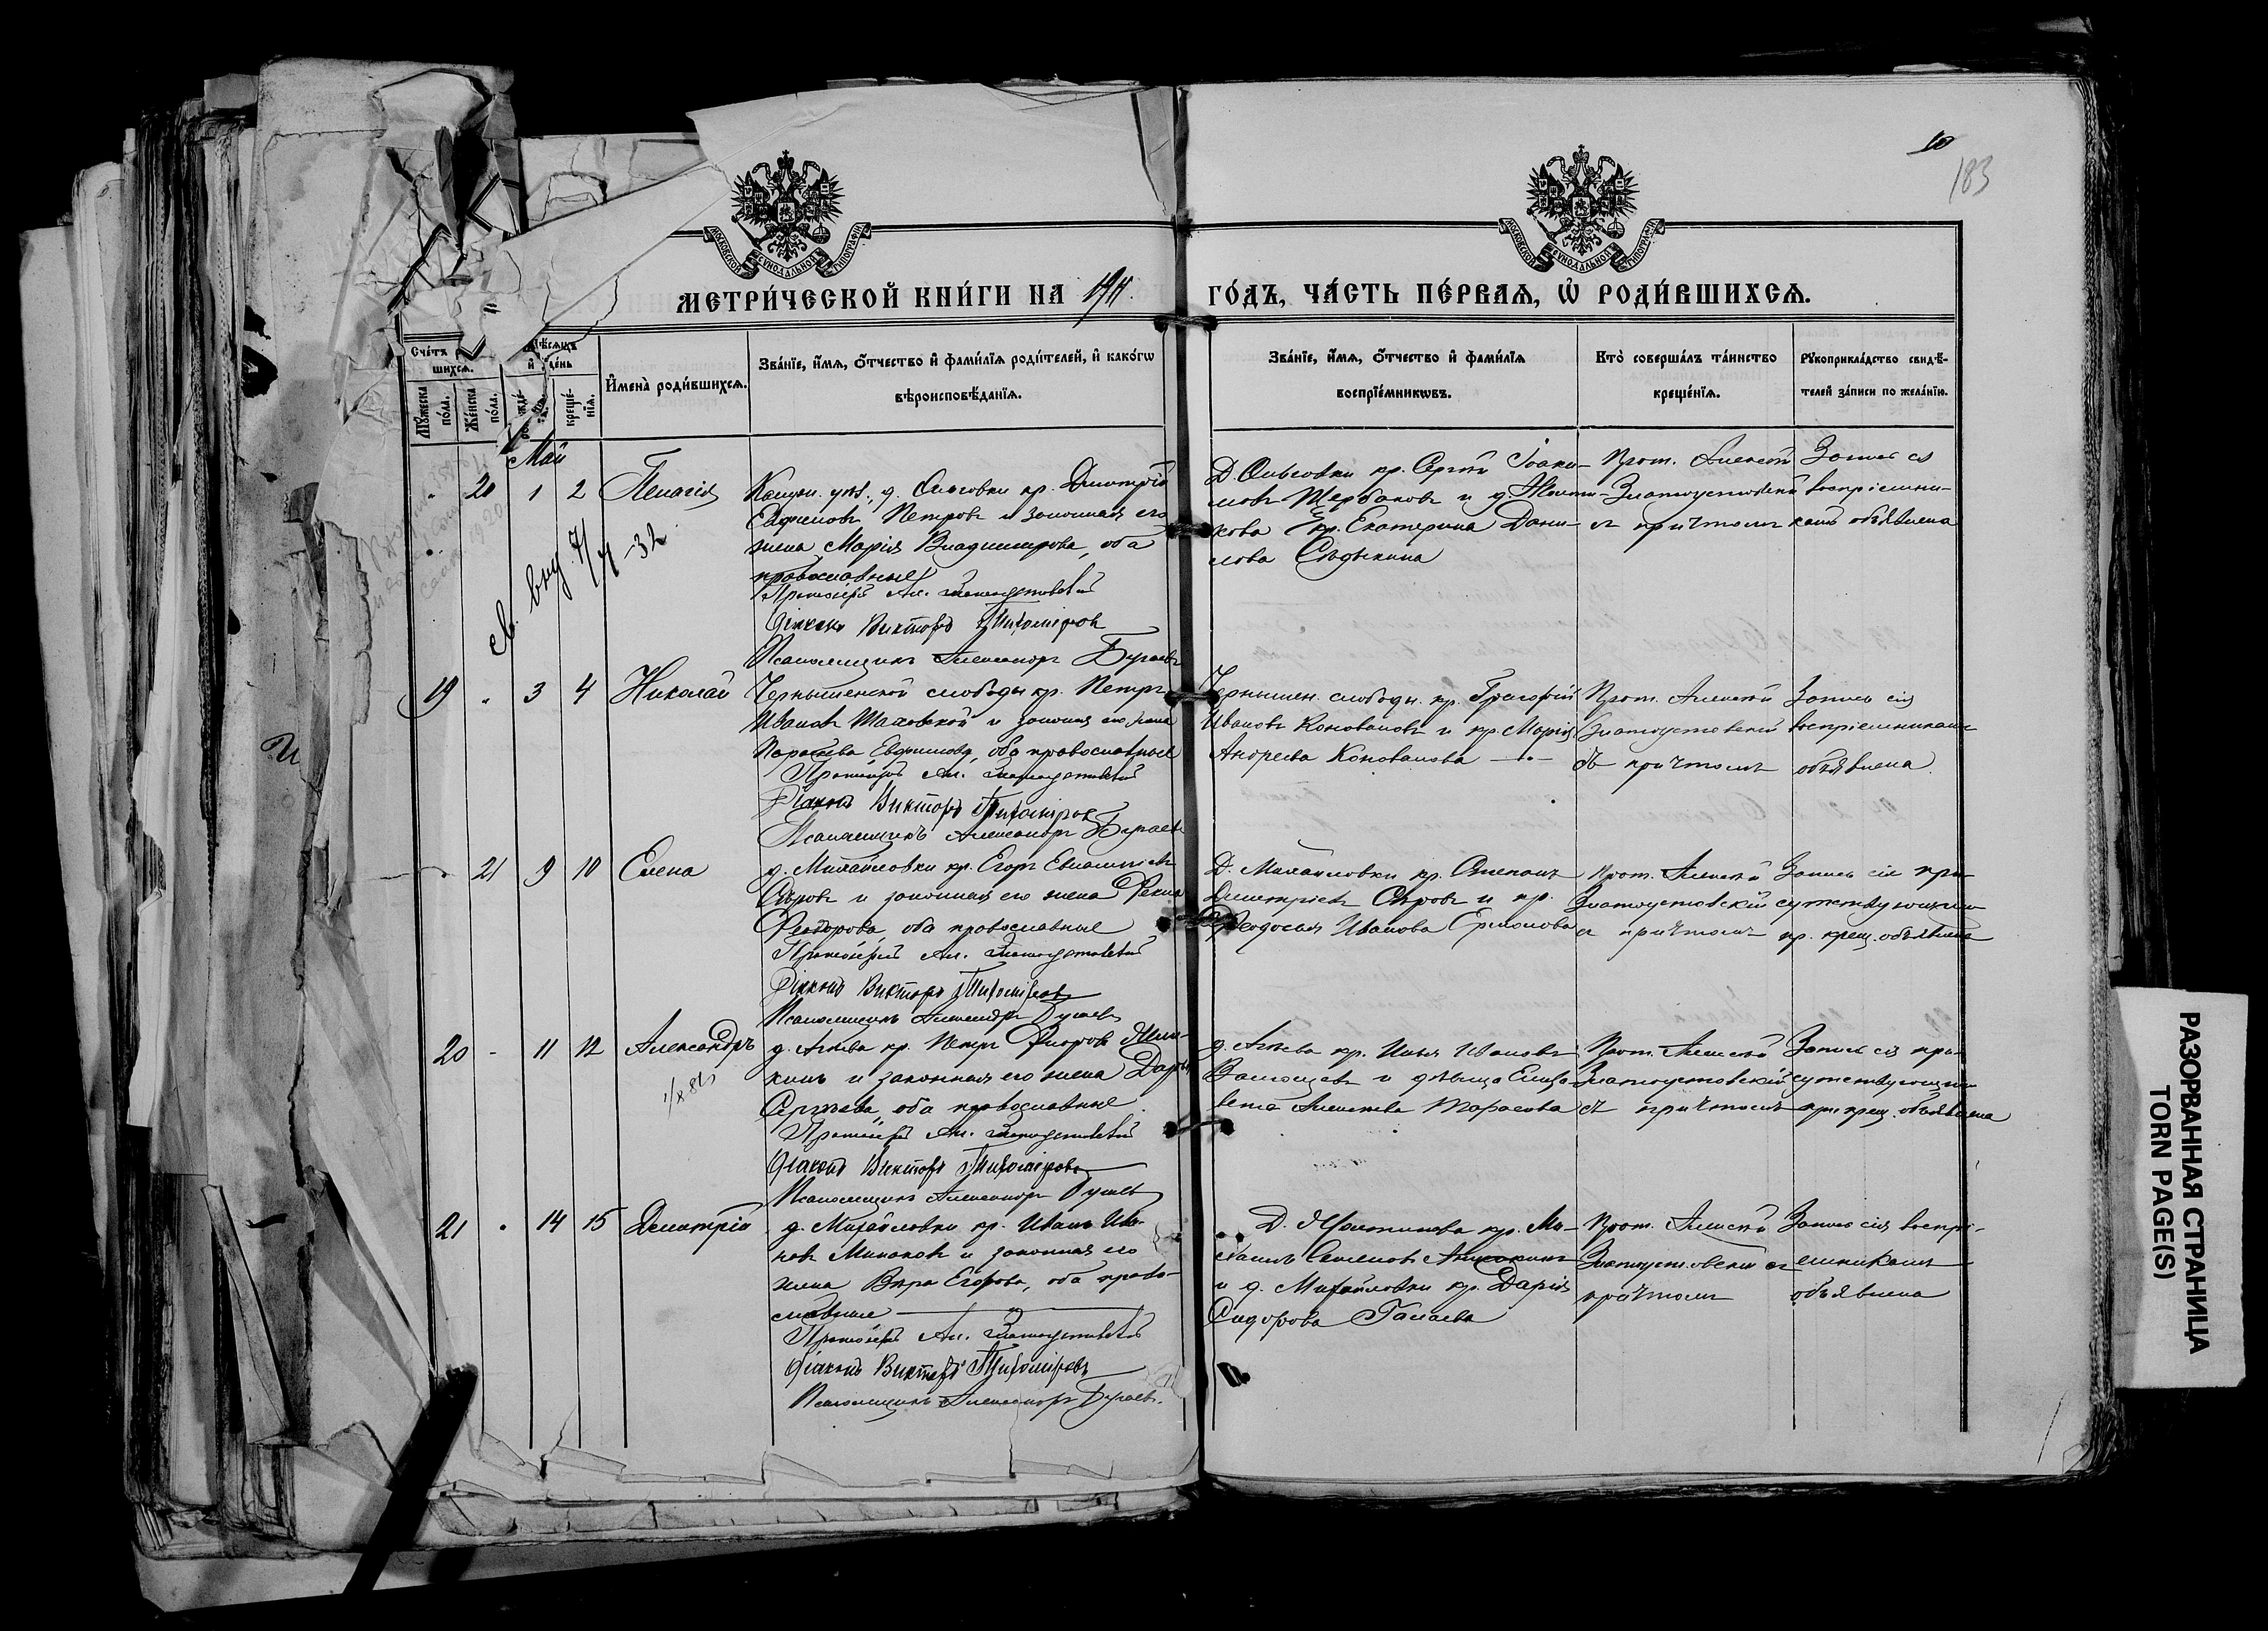 10
183
МОСКОВСКОЙ СѴНОДАЛЬНОЙ ТИПОГРАФІИ
МОСКОВСКОЙ СѴНОДАЛЬНОЙ ТИПОГРАФІИ
МЕТРИ́ЧЕСКОЙ КНИ́ГИ НА 1911. ГО́ДЪ, ЧА́СТЬ ПЕ́РВАѦ, Ѡ҆ РОДИ́ВШИХСѦ.
Сче́тъ
шихсѧ.
Мꙋ́жеска по́ла.
Же́нска по́ла.
Мѣ́сѧцъ
и҆ де́нь
креще́нїѧ.
И҆мена̀ роди́вшихсѧ.
Зва́нїе, и҆́мѧ, ѻ҆́тчество и҆ фами́лїѧ роди́телей, и҆ како́гѡ
вѣроисповѣ́данїѧ.
Зва́нїе, и҆́мѧ, ѻ҆́тчество и҆ фами́лїѧ
воспрїе́мникѡвъ.
Кто̀ соверша́лъ та́инство
креще́нїѧ.
Рꙋкоприкла́дство свидѣ́-
телей за́писи по жела́нїю.
Май
20 1 2 Пелагія
д. Ольговки кр. Димитрій
Евфимовъ Петровъ и законная его
жена Марія Владимирова, оба
православные
Протоіерей Ал. Златоустовскій
Діаконъ Викторъ Тихоміровъ
Псаломщикъ Александръ Бугаевъ
Д. Ольговки кр. Сергій Іоаки-
мовъ Щербаковъ и д.
кова кр. Екатерина Дани-
лова Сѣдыкина
Прот. Алексій
Златоустовскій
съ причтомъ
Запись сія
воспріемни-
камъ объявлена
св. выд. 7/
-32
19 " 3 4 Николай
Чернышенской слободы кр. Петръ
Ивановъ Шаховской и законная его жена
Параскева Евфимова, оба православные
Протоіерей Ал. Златоустовскій
Діаконъ Викторъ Тихоміровъ
Псаломщикъ Александръ Бугаевъ
Чернышен. слободы кр. Григорій
Ивановъ Коноваловъ и кр. Марія
Андреева Коновалова
Прот. Алексій
Златоустовскій
съ причтомъ
Запись сія
воспріемникамъ
объявлена.
21 9 10 Елена
д. Михайловки кр. Егоръ Евлампіевъ
Сѣровъ и законная его жена Фекла
Феодорова, оба православные
Протоіерей Ал. Златоустовскій
Діаконъ Викторъ Тихоміровъ
Псаломщикъ Александръ Бугаевъ
Д. Михайловки кр. Степанъ
Димитріевъ Сѣровъ и кр.
Феодосія Иванова Ермолова
Прот. Алексій
Златоустовскій
съ причтомъ
Запись сія при-
сутствующимъ
пр. крещ. объявлена
20 - 11 12 Александръ
д. Агѣева кр. Петръ
кинъ и законная его жена Дарья
Сергѣева, оба православные
Протоіерей Ал. Златоустовскій
Діаконъ Викторъ Тихоміровъ
Псаломщикъ Александръ Бугаевъ
д. Агѣева кр. Илья Ивановъ
и дѣвица Елиза-
вета Алексѣева Тарасова
Прот. Алексій
Златоустовскій
съ причтомъ
Запись сія при-
сутствующимъ
при крещ. объявлена
21 " 14 15 Димитрій
д. Михайловки кр. Иванъ Ива-
новъ Минаковъ и законная его
жена Вѣра Егорова, оба право-
славные
Протоіерей Ал. Златоустовскій
Діаконъ Викторъ Тихоміровъ
Псаломщикъ Александръ Бугаевъ.
кр. Ми-
хаилъ Семеновъ
и д. Михайловки кр. Дарія
Сидорова Галаева
Прот. Алексій
Златоустовскій съ
причтомъ
Запись сія воспрі-
емникамъ
объявлена
РАЗОРВАННАЯ СТРАНИЦА
TORN PAGE(S)